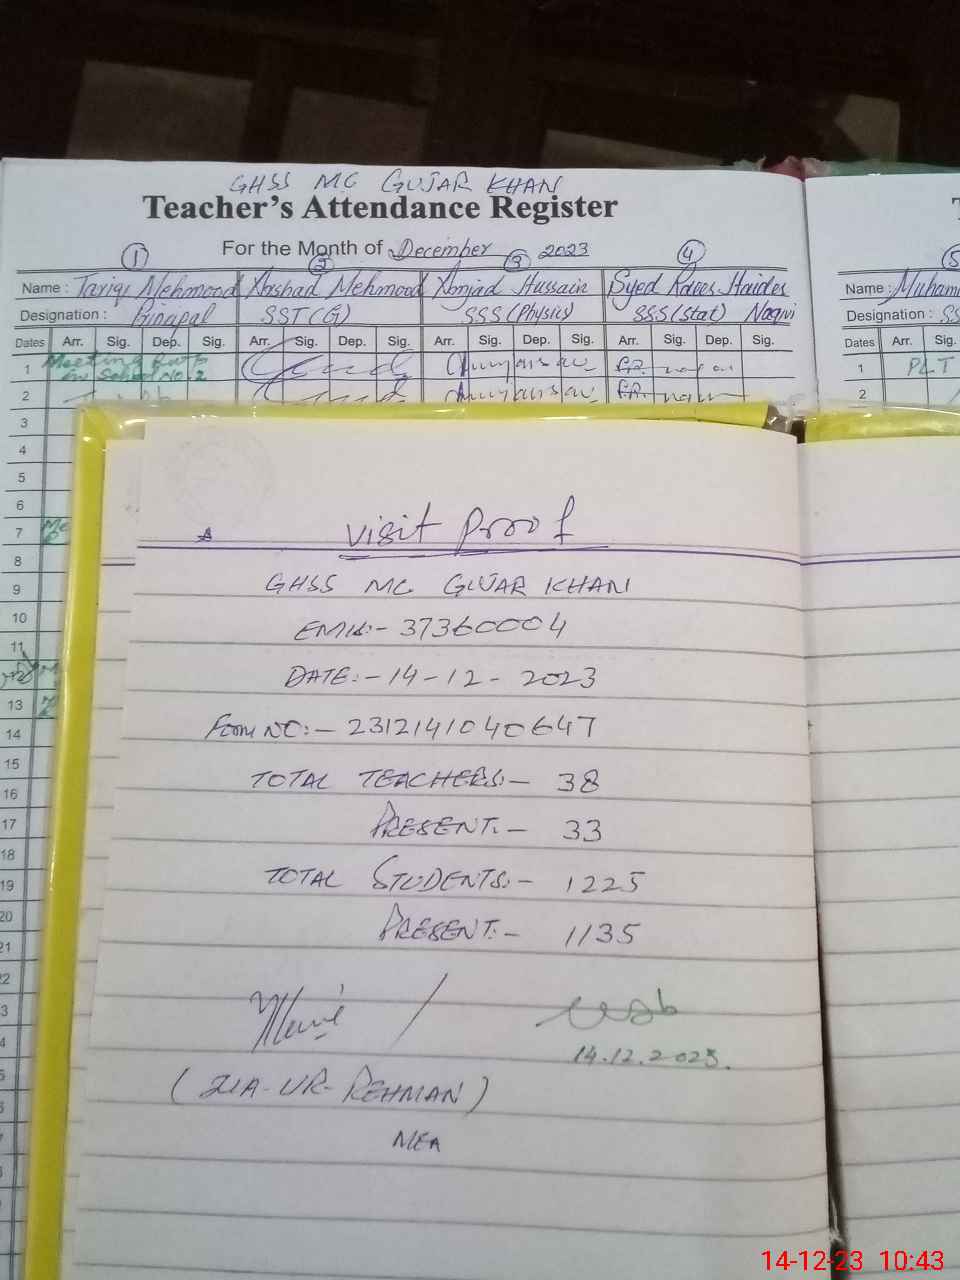 GHSS MC GUJAR KHAN
Teacher's Attendance Register
For the Month of December 2023
1 2 3 4 5
Name : Tariq Mehmood Arshad Mehmood Amjad Hussain Syed Raees Haider Muham
Designation : Prinapal SST(G) SSS(Physics) SSS(Stat) Naqvi Designation : SS
Dates Arr. Sig. Dep. Sig. Arr. Sig. Dep. Sig. Arr. Sig. Dep. Sig. Arr. Sig. Dep. Sig. Dates Arr. Sig.
1 Meeting 1 PLT
School No. 2
2 2
3
4
5
6
7
8
9
10
11
13
14
15
16
17
18
19
20
21
22
visit proof
GHSS MC GUJAR KHAN
EMIS:- 37360004
DATE:- 14-12-2023
Form NO:- 231214104064７
TOTAL TEACHERS:- 38
PRESENT:- 33
TOTAL STUDENTS:- 1225
PRESENT:- 1135
14.12.2023.
(ZIA-UR-REHMAN)
MEA
14-12-23 10:43